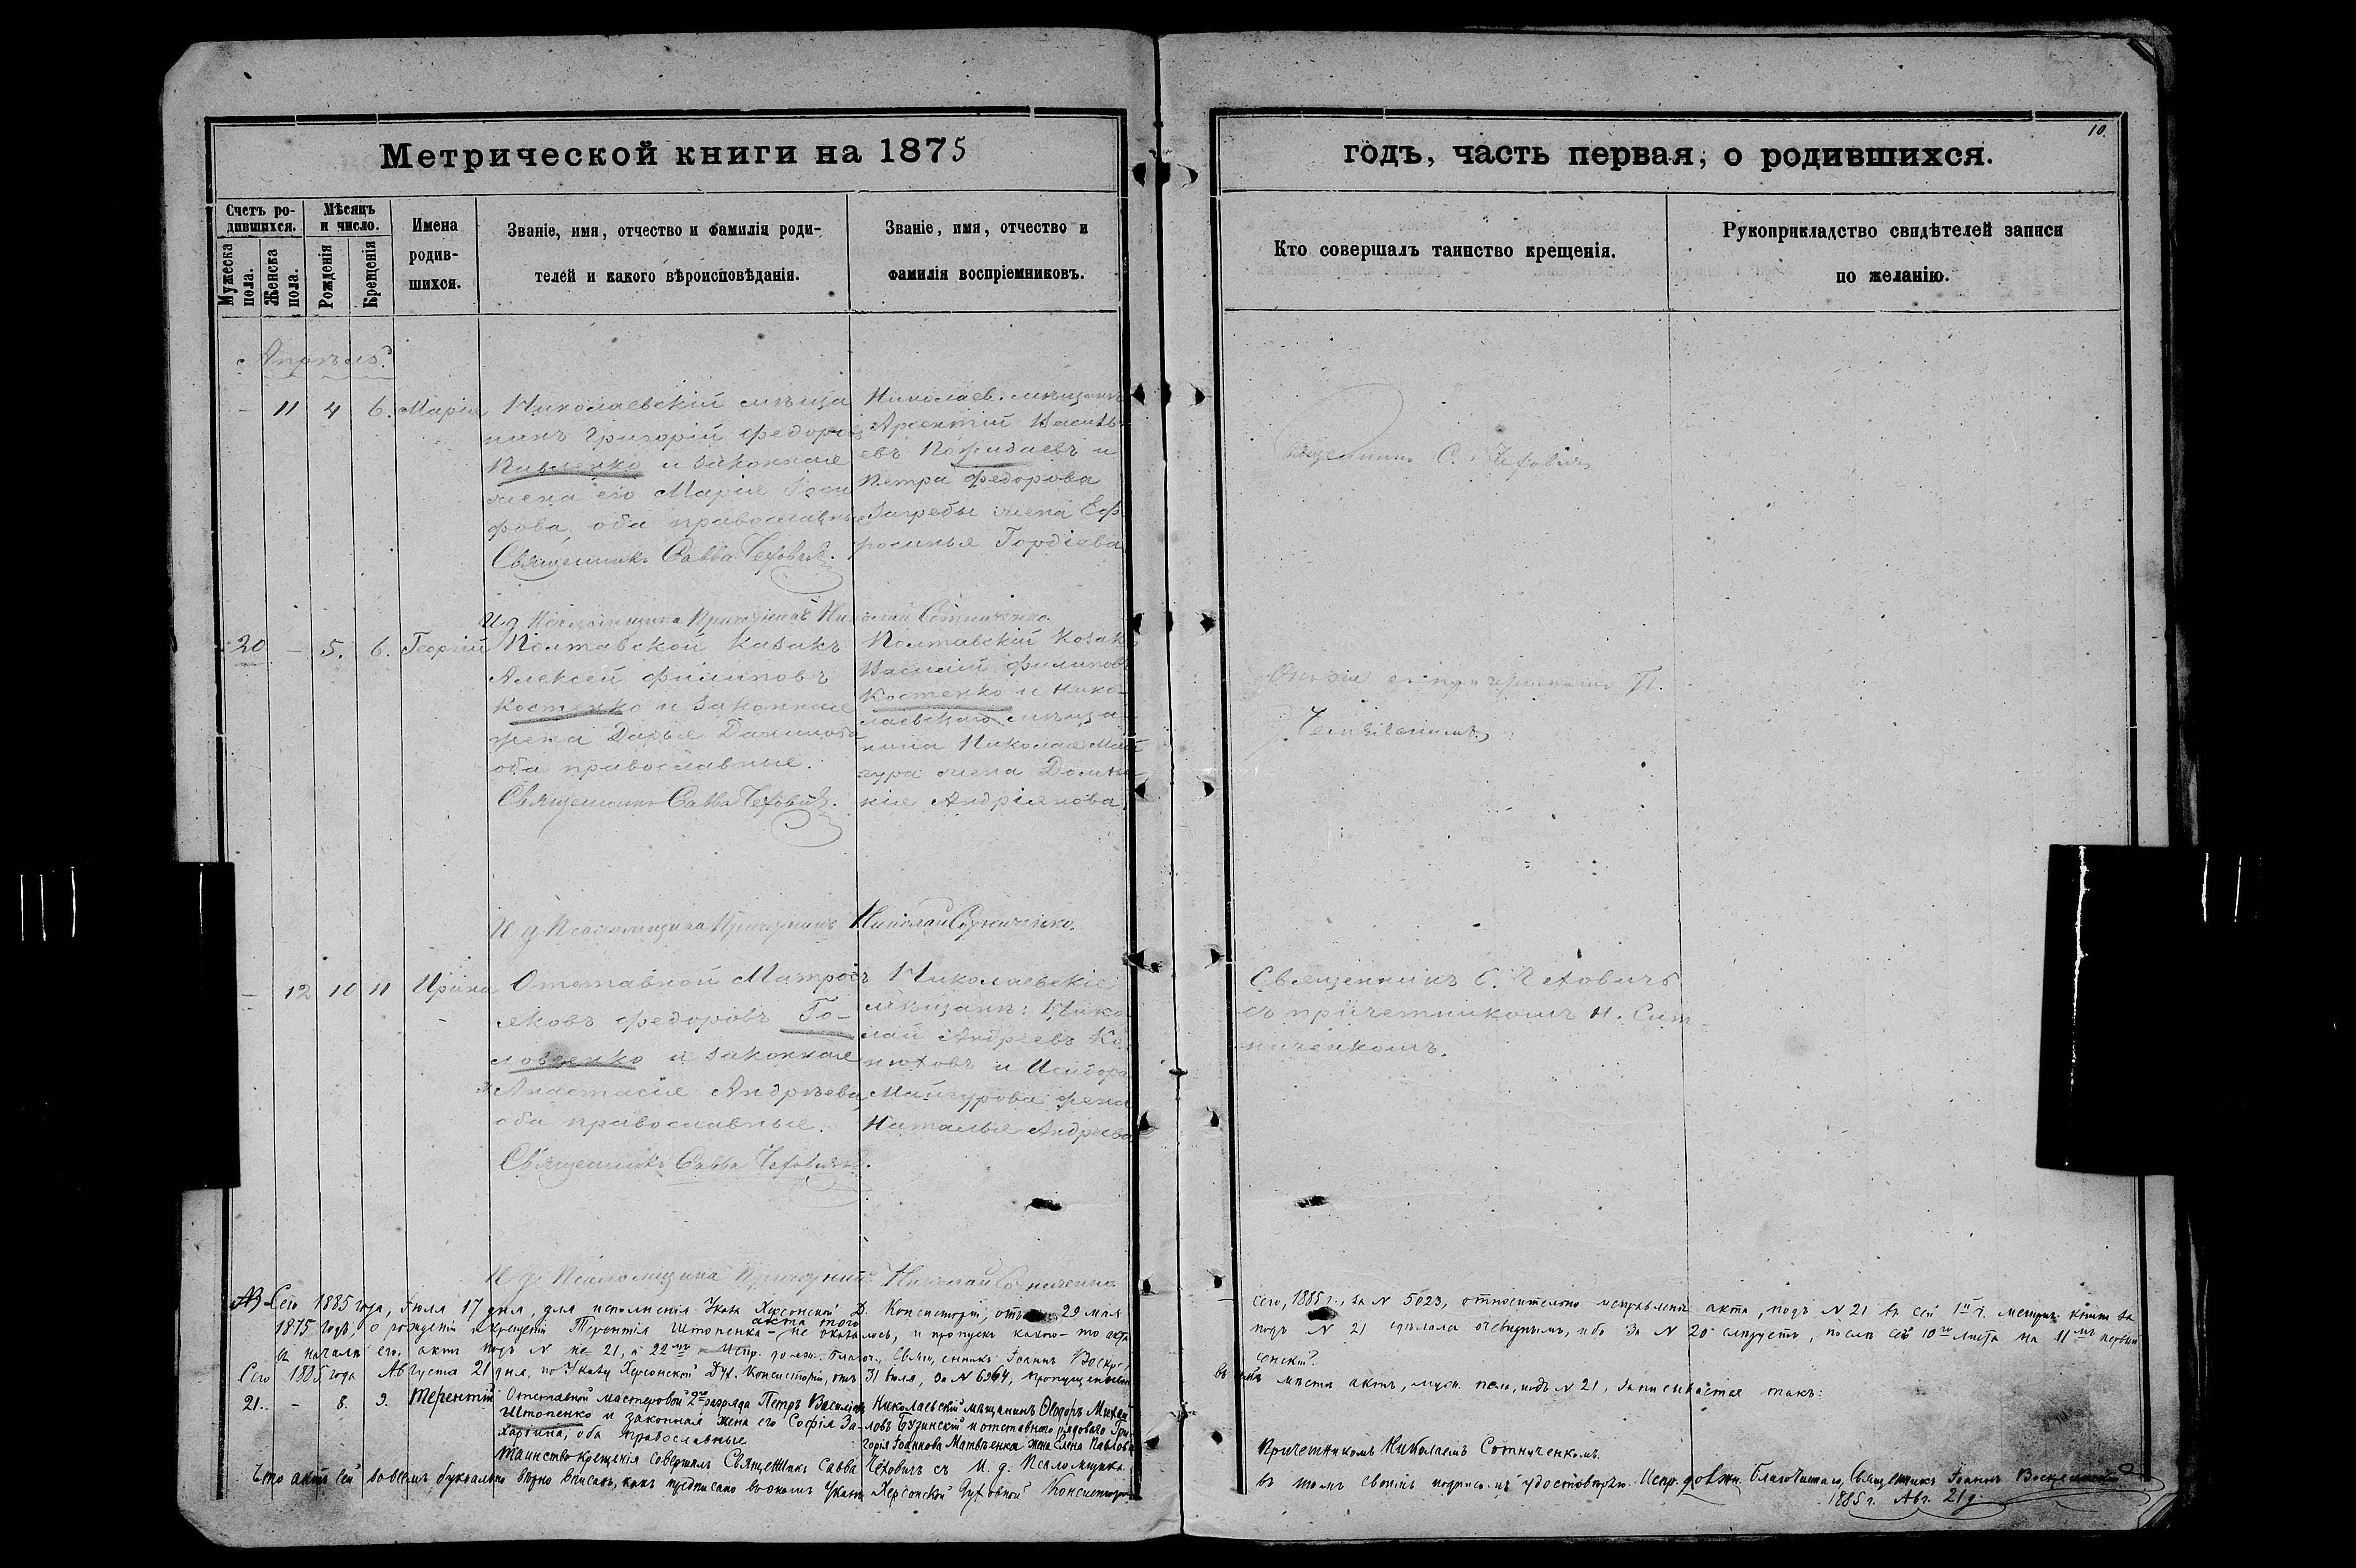 Метрической книги на 1875
Счетъ ро-
дившихся.
Мужеска пола.
Женска пола.
Мѣсяцъ
и число.
Рожденія
Крещенія
Имена
родив-
шихся.
Званіе, имя, отчество и фамилія роди-
телей и какого вѣроисповѣданія.
Званіе, имя, отчество и
фамилія воспріемниковъ.
Апрѣль
- 11 4 6. Марія
Николаевскій мѣща
нинъ Григорій Федоровъ
Павленко и законная
жена его Марія
фова, оба православные
Священникъ Савва Чеховичъ.
Николаев. мѣщанинъ
Арсентій Василь
евъ и
Петра Федорова
Загребы жена Еф
росинья Гордіева
И. д. Псаломщика Причетникъ Николай Сотниченко.
20 - 5. 6. Георгій
Полтавской Казакъ
Алексей Филиповъ
Костенко и законная
жена Дарья Данилова
оба православные.
Священникъ Савва Чеховичъ.
Полтавскій Козакъ
Василій Филиповъ
Костенко и Нико-
лаевскаго мѣща-
нина Николая
жена Домни-
кія Андріянова
И. д. Псаломщика Причетникъ Николай Сотниченко.
- 12 10 11 Ирина
Отставной Матросъ
Яковъ Федоровъ Го-
ловченко и законная
Анастасія Андрѣева,
оба православные.
Священникъ Савва Чеховичъ.
Николаевскіе
мѣщане: Нико
лай Андреевъ Ко
нюховъ и Исидора
Майгурова жена
Наталья Андрѣева
И. д. Псаломщика Причетникъ Николай Сотниченко
Сего 1885 года, Іюля 17 дня, для исполненія Указа Херсонской Д. Консисторіи, отъ 29 мая
акта того
1875 годъ, о рожденіи и крещеніи Терентія Штопенка - не оказалось, и пропускъ какого-то акта
въ началѣ его, актъ подъ N не 21, а 22мъ Испр. должн. Благоч., Священникъ Іоаннъ Воскре-
Сего 1885 года Августа 21 дня, по Указу Херсонской Дух. Консисторіи, отъ 31 Іюля, за N 6264,
21. - 8. 9. Терентій
Отставной мастеровой 2го разряда Петръ Василіевъ
Штопенко и законная жена его Софія За-
харіина, оба православные
Николаевскій мѣщанинъ Ѳеодоръ Михай
ловъ Бузинскій и отставного рядоваго Гри
горія Іоаннова Матвѣенка жена Елена Павлова
Таинство крещенія совершалъ Священникъ Савва Чеховичъ съ И. д. Псаломщика
Что актъ сей во всемъ буквально вѣрно вписанъ, какъ предписано въ ономъ Указѣ Херсонской Духовной Консисторіи
10.
годъ, часть первая, о родившихся.
Кто совершалъ таинство крещенія.
Рукоприкладство свидѣтелей записи
по желанію.
Священникъ С. Чеховичъ
Священникъ С. Чеховичъ
съ причетникомъ Н. Сот-
ниченкомъ.
сего, 1885 г., за N 5023, относительно исправленія акта, подъ N 21 въ сей 1й ч. метрич. книги за
подъ N 21 сдѣлался очевиднымъ, ибо за N 20 слѣдуетъ, послѣ сего 10го листа на 11мъ первый
сенскій.
въ мѣстѣ актъ, муж. пола, подъ N 21, записывается такъ:
Причетникомъ Николаемъ Сотниченкомъ.
въ томъ своимъ подписомъ удостовѣряю. Испр. должн. Благочиннаго, Священникъ Іоаннъ Воскресенскій
1885 г. Авг. 21 д.